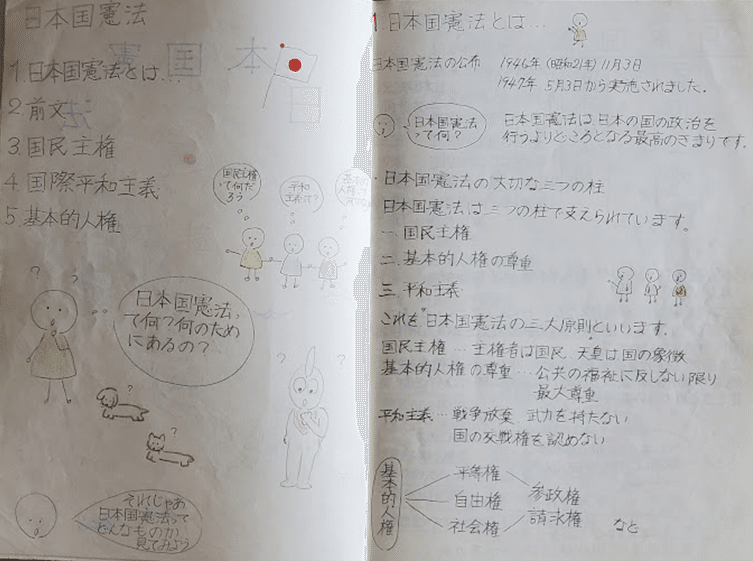 日本国憲法
1.日本国憲法とは...
2.前文
3.国民主権
4.国際平和主義
5.基本的人権
国民主権
って何だ
ろう
平和
主義は?
日本国憲法
って何?何のため
にあるの?
それじゃあ
日本国憲法って
どんなものか
見てみよう
1.日本国憲法とは...
日本国憲法の公布 1946年(昭和21年)11月3日
1947年 5月3日から実施されました.
日本国憲法
って何?
日本国憲法は日本の国の政治を
行うよりどころとなる最高のきまりです。
・日本国憲法の大切な三つの柱
日本国憲法は三つの柱で支えられています。
一.国民主権
二.基本的人権の尊重
三.平和主義
これを日本国憲法の三大原則といいます.
国民主権…主権者は国民、天皇は国の象徴
基本的人権の尊重…公共の福祉に反しない限り
最大尊重
平和主義…戦争放棄 武力を持たない
国の交戦権を認めない
基本的人権
平等権
自由権
社会権
参政権
請求権
など